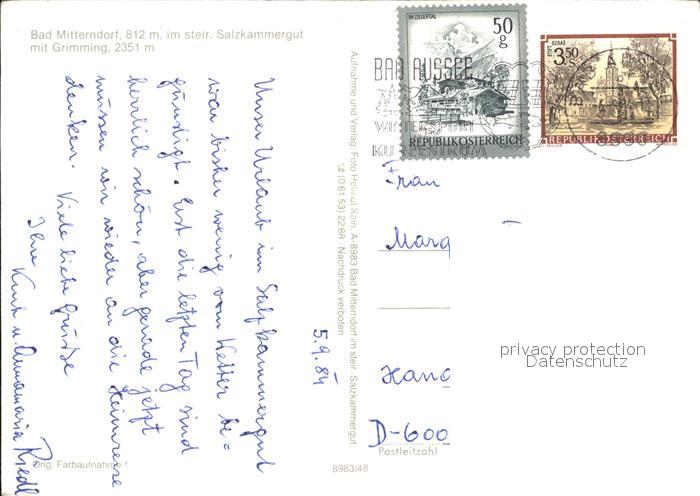 Bad Mitterndorf, 812 m, im steir. Salzkammergut
mit Grimming, 2351 m
5.9.84
Unser Urlaub im Salzkammergut
war bisher wenig vom Wetter be=
günstigt. Erst die letzten Tag sind
herrlich schön, aber gerade jetzt
müssen wir wieder an die Heimreise
denken. Viele liebe Grüße
Ihre
Kurt u. Annamaria Riedl
Orig. Farbaufnahme
8983/48
Aufnahme und Verlag: Foto Helmut Kain, A-8983 Bad Mitterndorf im steir. Salzkammergut,
(0 61 53) 22 88 Nachdruck verboten
IM ZILLERTAL
50
g
REPUBLIK ÖSTERREICH
STIFT GERAS
3.50
S
REPUBLIK ÖSTERREICH
BAD AUSSEE
WINTERSPORT
KURZENTRUM
Frau
Marg
Hano
D-600
Postleitzahl
privacy protection
Datenschutz